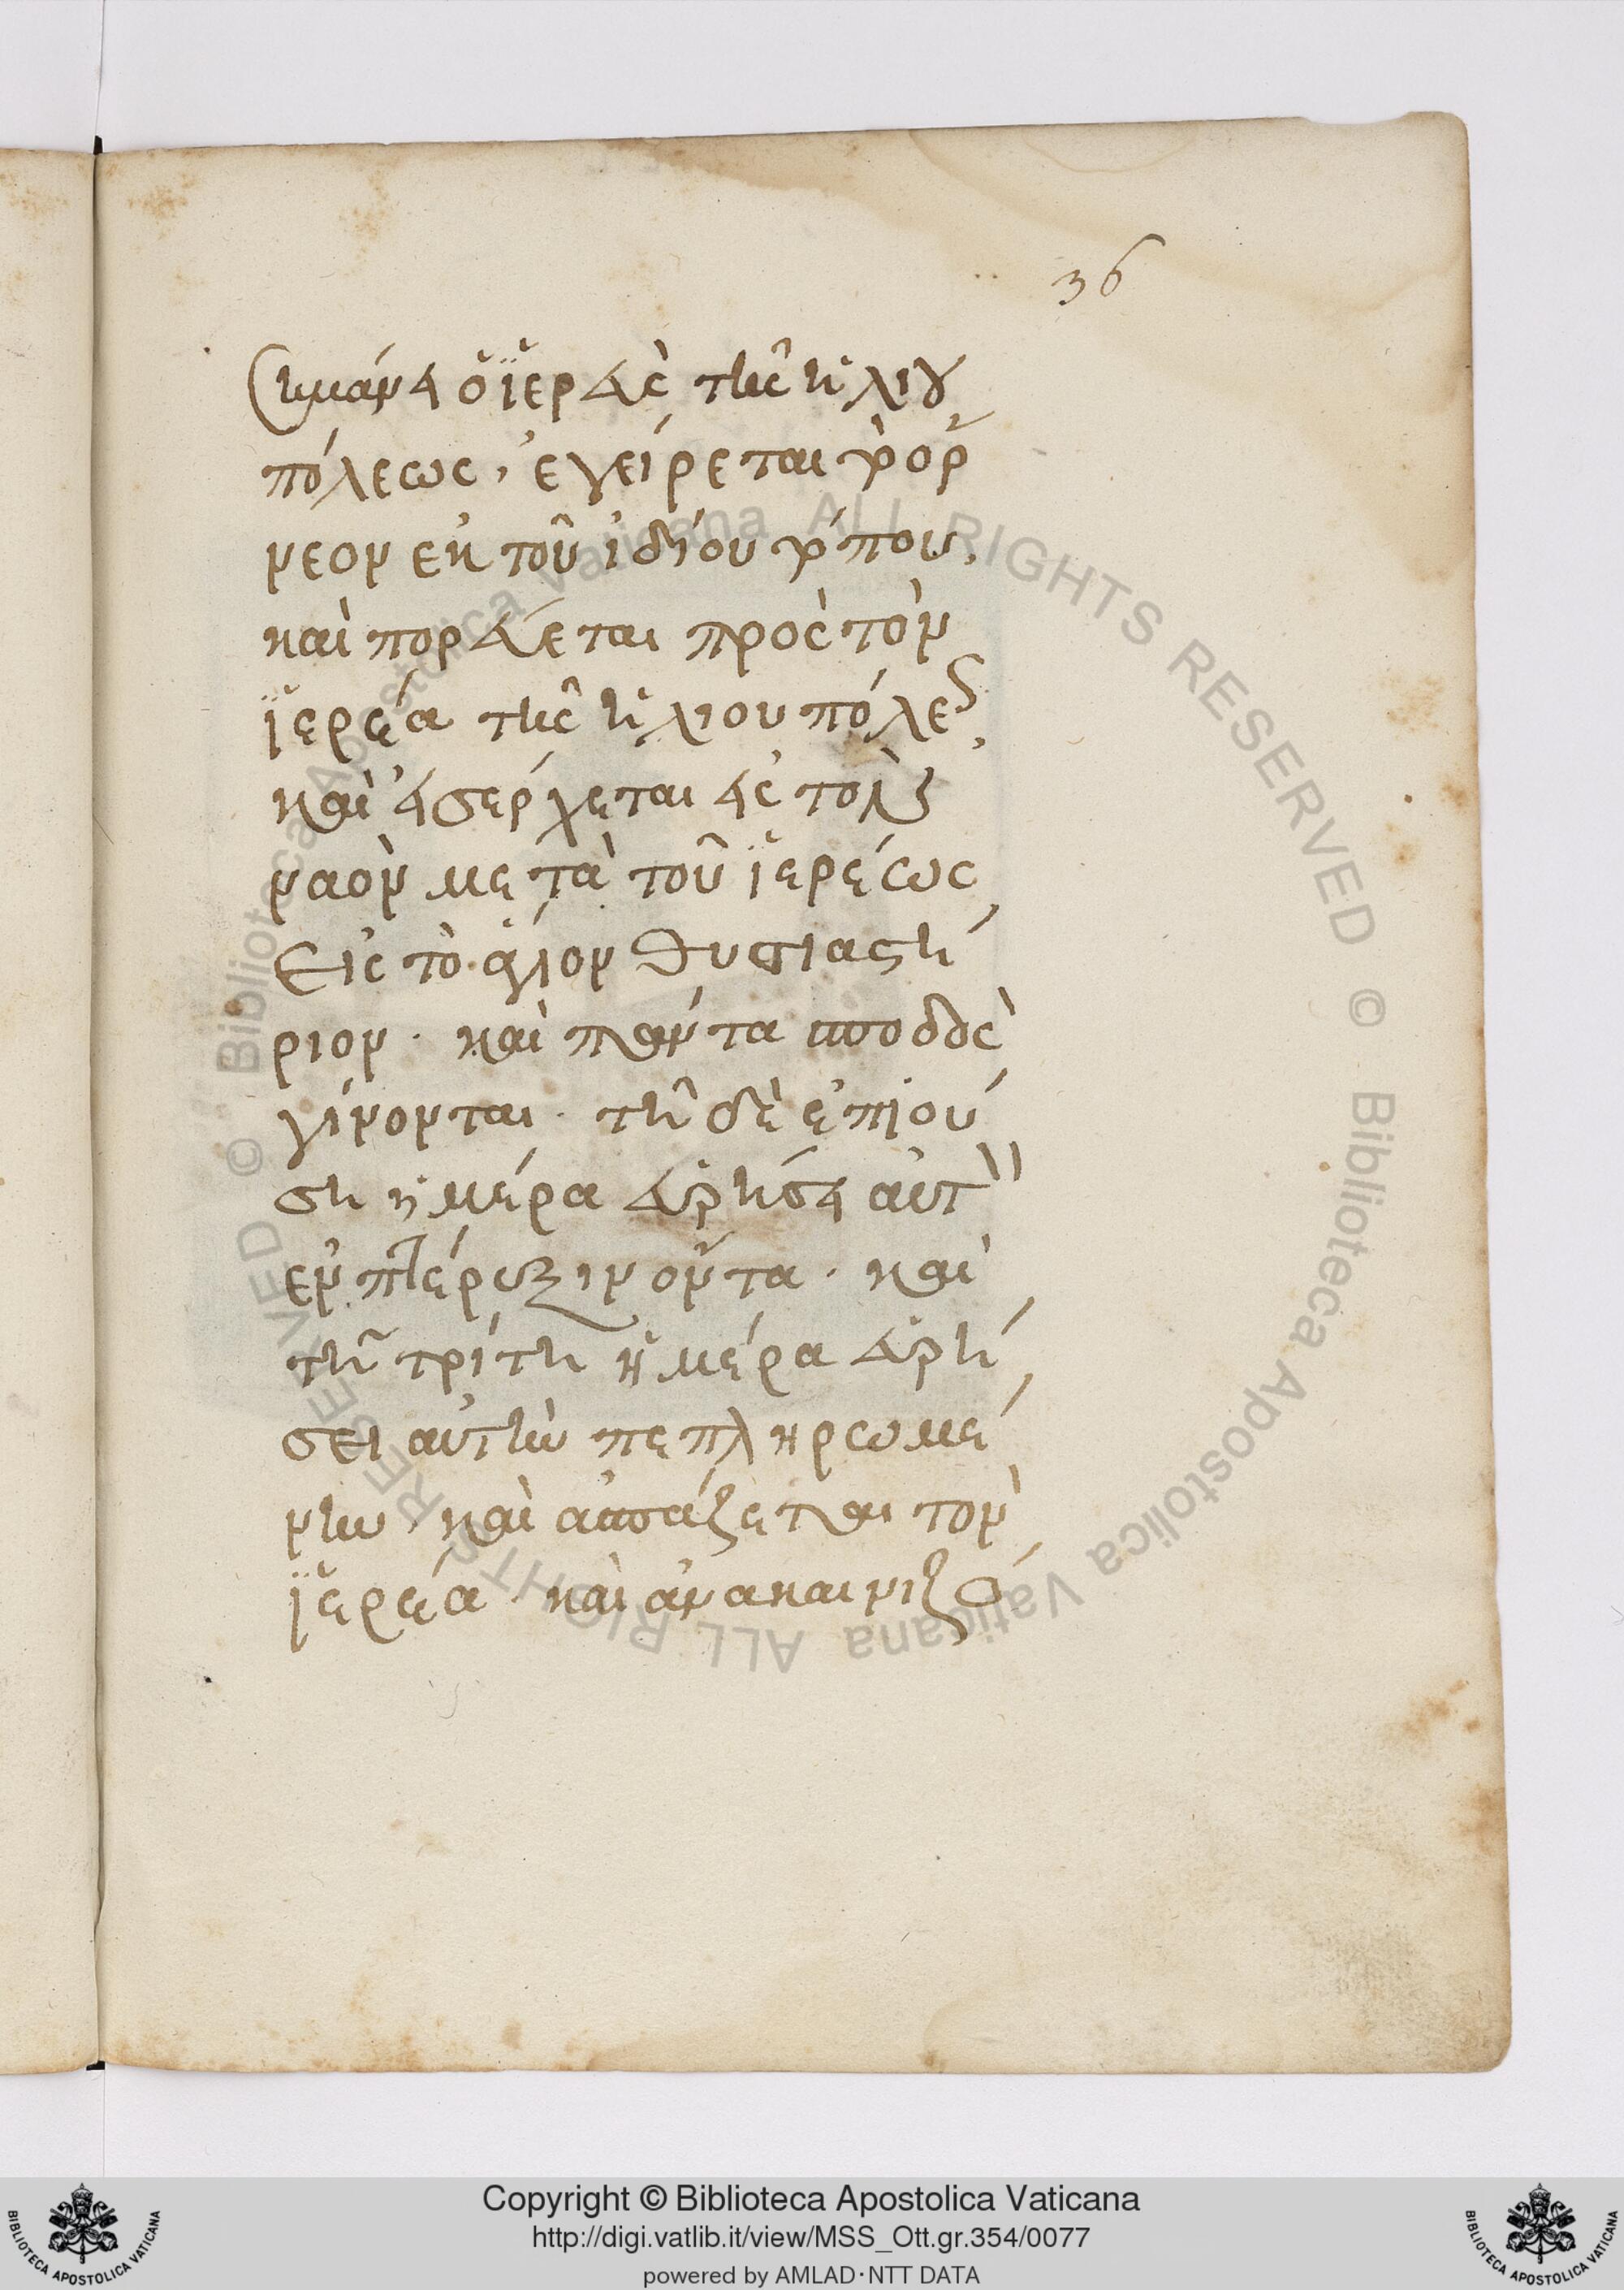 36
Σημάνει ὁ ἱερεὺς τῆς ἡλίου
πόλεως, ἐγείρεται τὸ ὄρ
νεον ἐκ τοῦ ἰδίου τόπου,
καὶ πορεύεται πρὸς τὸν
ἱερέα τῆς ἡλιουπόλεως,
καὶ εἰσέρχεται εἰς τὸν
ναὸν μετὰ τοῦ ἱερέως
εἰς τὸ ἅγιον θυσιαστή
ριον · καὶ πάντα σποδὸς
γίνονται · τῆ δὲ ἐπιού
ση ἡμέρα εὑρήσει αὐτὸν
ἐν πτέρυξιν ὄντα · καὶ
τῆ τρίτη ἡμέρα εὑρή
σει αὐτὴν πεπληρωμέ
νην, καὶ ἀσπάζεται τὸν
ἱερέα καὶ ἀνακαινιζό
Copyright © Biblioteca Apostolica Vaticana
http://digi.vatlib.it/view/MSS_Ott.gr.354/0077
powered by AMLAD·NTT DATA
BIBLIOTECA APOSTOLICA VATICANA
BIBLIOTECA APOSTOLICA VATICANA
© Biblioteca Apostolica Vaticana ALL RIGHTS RESERVED
© Biblioteca Apostolica Vaticana ALL RIGHTS RESERVED